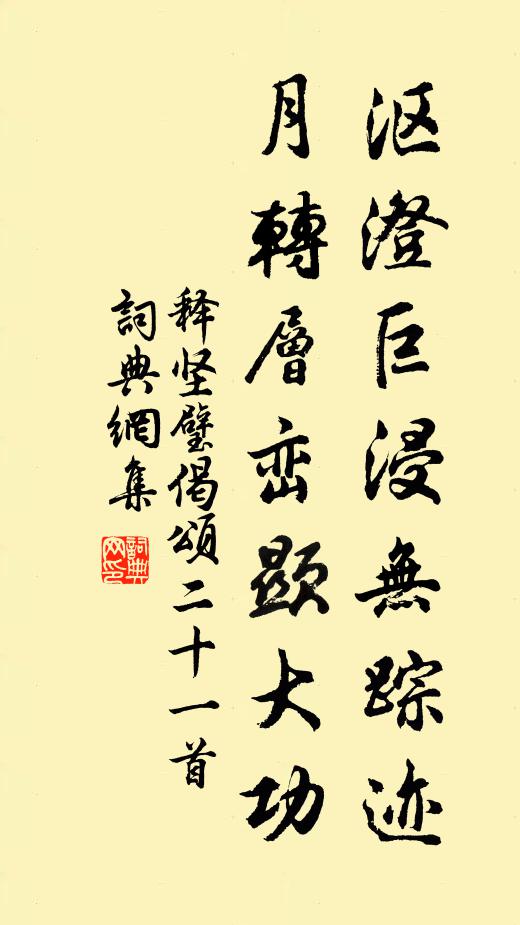 沤澄巨浸無踪迹
月轉層峦顯大功
释坚璧偈頌二十一首
詞典網集
詞典网印